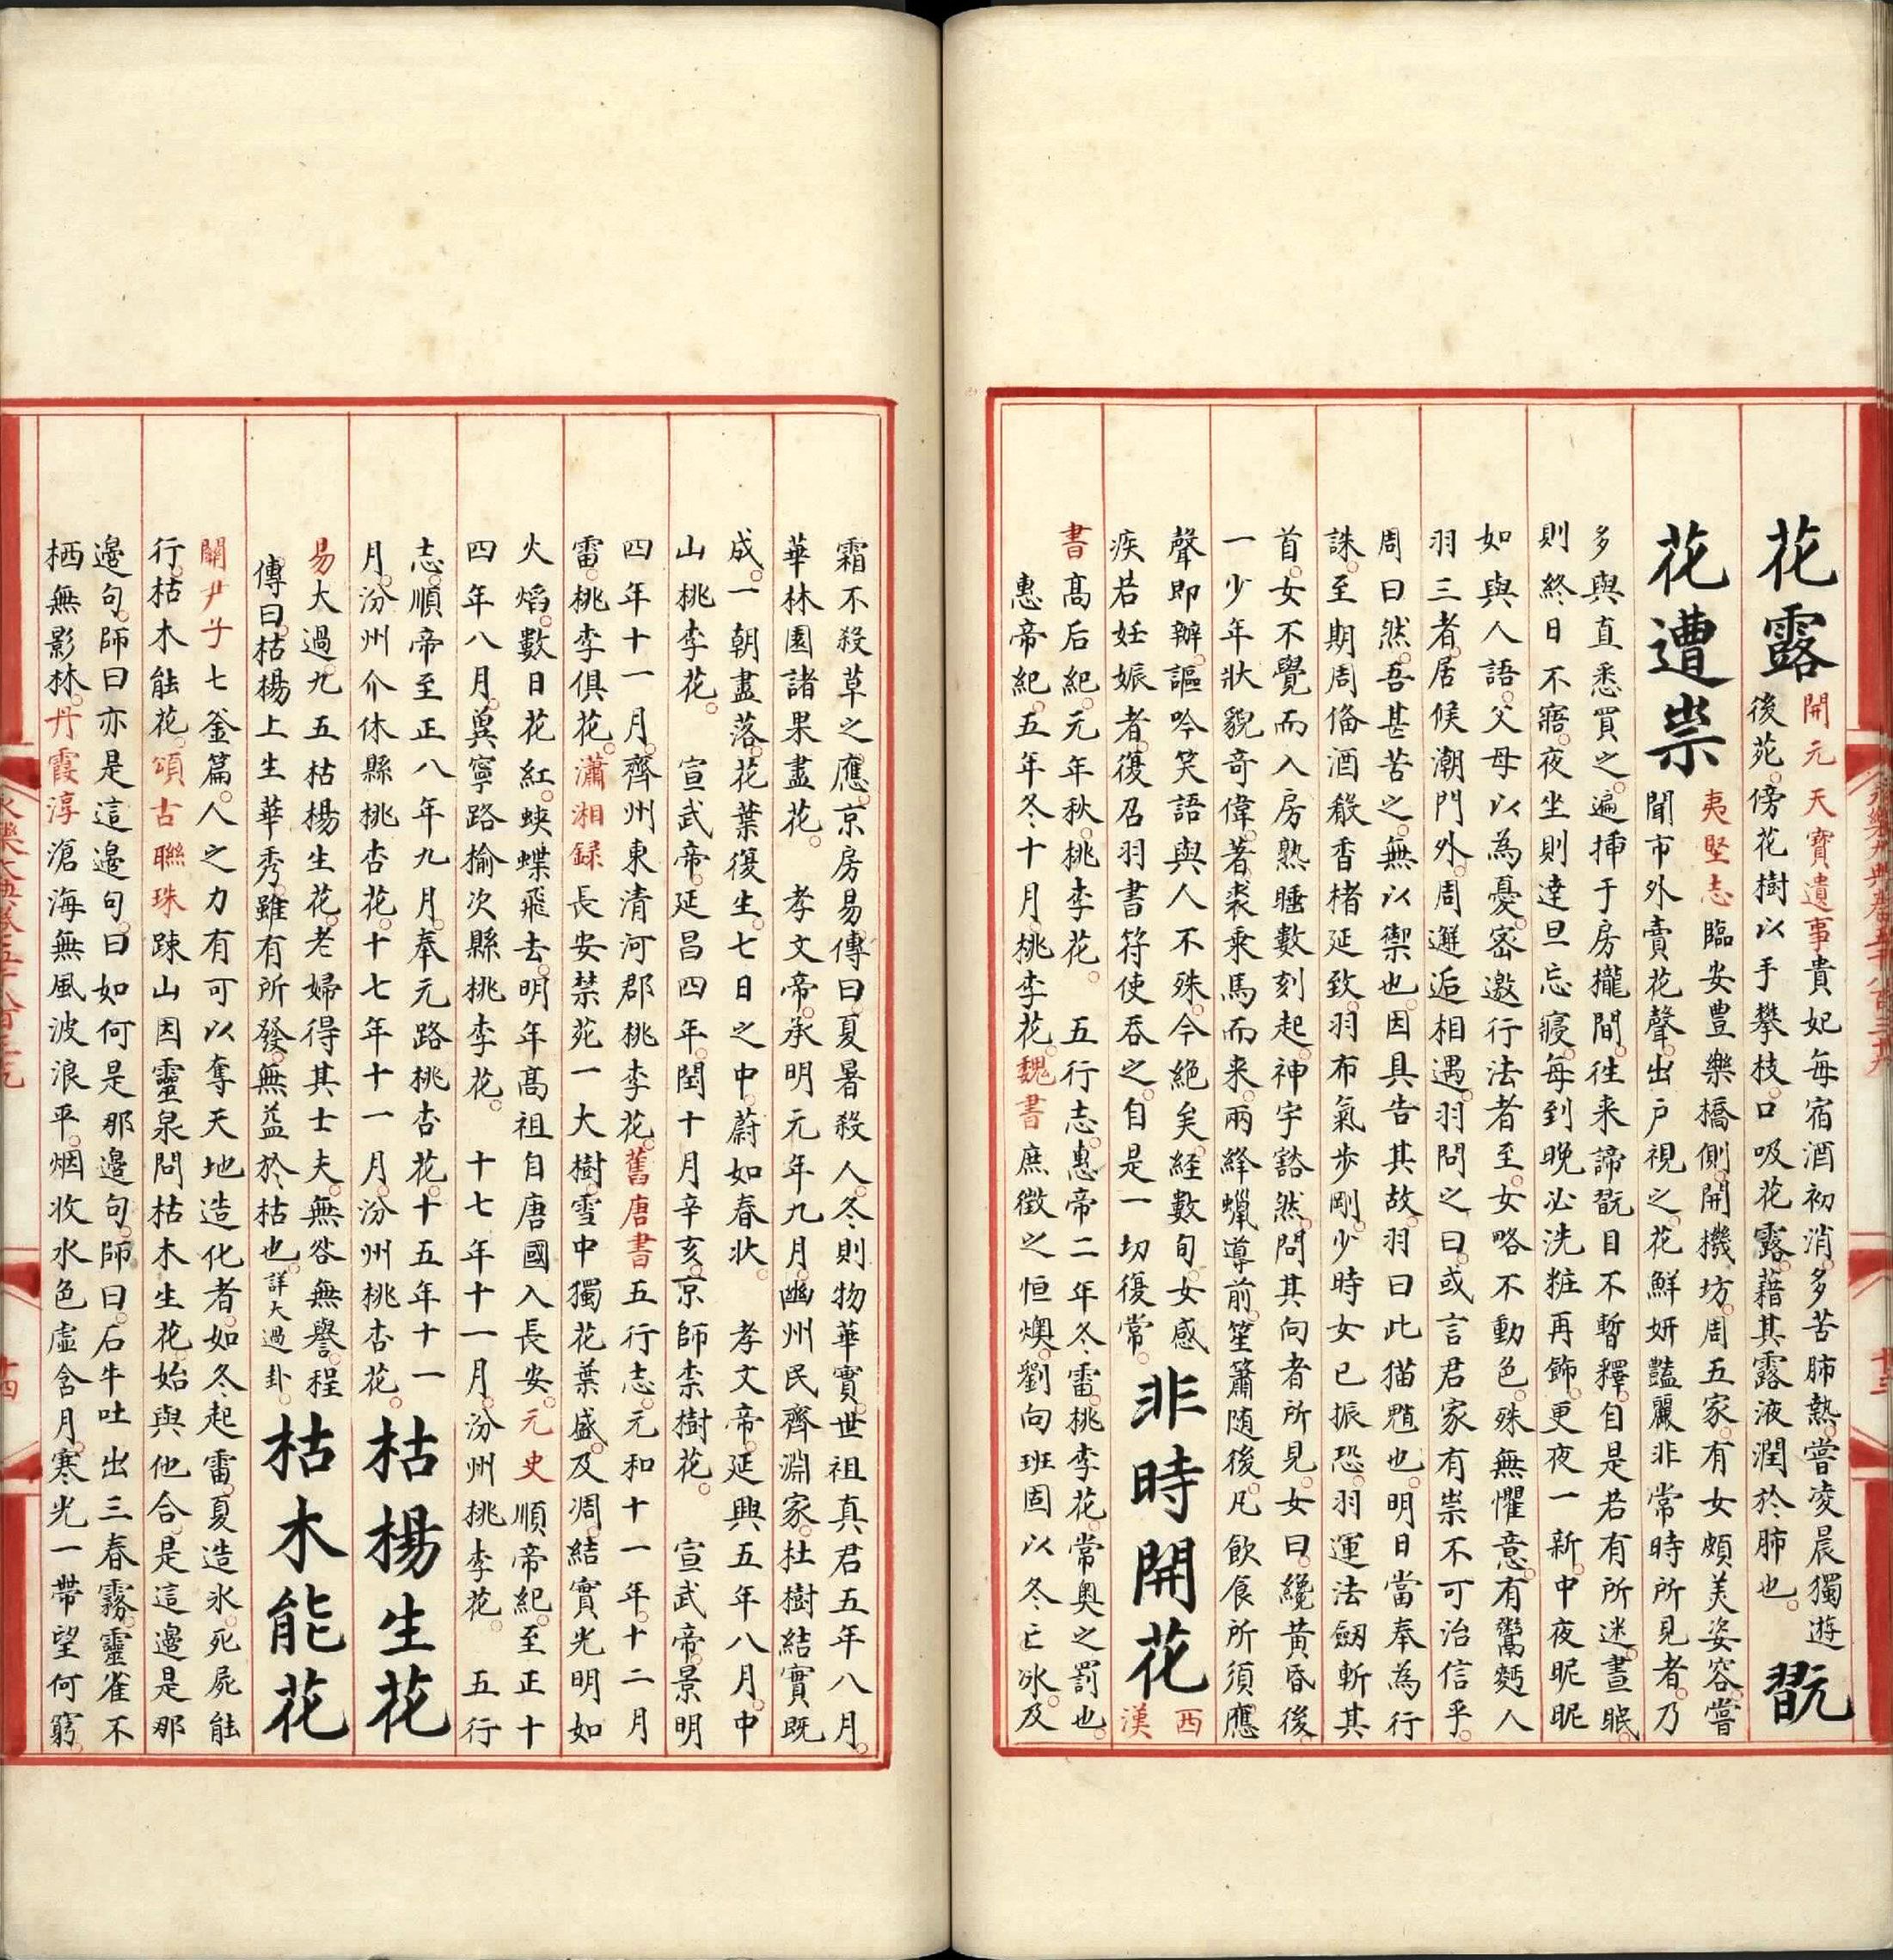 花露
開元天寶遺事貴妃每宿酒初消多苦肺熱嘗凌晨獨遊
後苑傍花樹以手攀枝口吸花露藉其露液潤於肺也
翫
花遭祟
夷堅志臨安豊樂橋側開機坊周五家有女頗美姿容嘗
聞市外賣花聲出戶視之花鮮妍豔麗非常時所見者乃
多與直悉買之遍揷于房攏間徃来諦翫目不暫釋自是若有所迷晝眠
則終日不寤夜坐則達旦忘寢每到晚必洗粧再飾更夜一新中夜昵昵
如與人語父母以為憂宻邀行法者至女略不動色殊無懼意有鬻麪人
羽三者居候潮門外周邂逅相遇羽問之曰或言君家有祟不可治信乎
周曰然吾甚苦之無以禦也因具告其故羽曰此猫魈也明日當奉為行
誅至期周俻酒殽香楮延致羽布氣步剛少時女已振恐羽運法劔斬其
首女不覺而入房熟睡數刻起神宇豁然問其向者所見女曰纔黄昏後
一少年狀貌竒偉著裘乘馬而来兩絳蠟導前笙簫随後凡飲食所須應
聲即辦謳吟笑語與人不殊今絶矣経數旬女感
疾若妊娠者復召羽書符使吞之自是一切復常
非時開花
西
漢
書髙后紀元年秋桃李花　五行志惠帝二年冬雷桃李花常奥之罰也
惠帝紀五年冬十月桃李花魏書庶徵之恒燠劉向班固以冬亡冰及
霜不殺草之應京房易傳曰夏暑殺人冬則物華實世祖真君五年八月
華林園諸果盡花　孝文帝承明元年九月幽州民齊淵家杜樹結實既
成一朝盡落花葉復生七日之中蔚如春狀　孝文帝延興五年八月中
山桃李花　宣武帝延昌四年閏十月辛亥京師柰樹花　宣武帝景明
四年十一月齊州東清河郡桃李花舊唐書五行志元和十一年十二月
雷桃李俱花瀟湘録長安禁苑一大樹雪中獨花葉盛及凋結實光明如
火熖數日花紅蛺蝶飛去明年髙祖自唐國入長安元史順帝紀至正十
四年八月兾寧路榆次縣桃李花　十七年十一月汾州桃李花　五行
志順帝至正八年九月奉元路桃杏花十五年十一
月汾州介休縣桃杏花十七年十一月汾州桃杏花
枯楊生花
易大過九五枯楊生花老婦得其士夫無咎無譽程
傳曰枯楊上生華秀雖有所發無益於枯也詳大過卦
枯木能花
關尹子七釜篇人之力有可以奪天地造化者如冬起雷夏造氷死屍能
行枯木能花頌古聯珠踈山因靈泉問枯木生花始與他合是這邉是那
邉句師曰亦是這邉句曰如何是那邉句師曰石牛吐出三春霧靈雀不
栖無影林丹霞淳滄海無風波浪平烟收水色虚含月寒光一帶望何窮